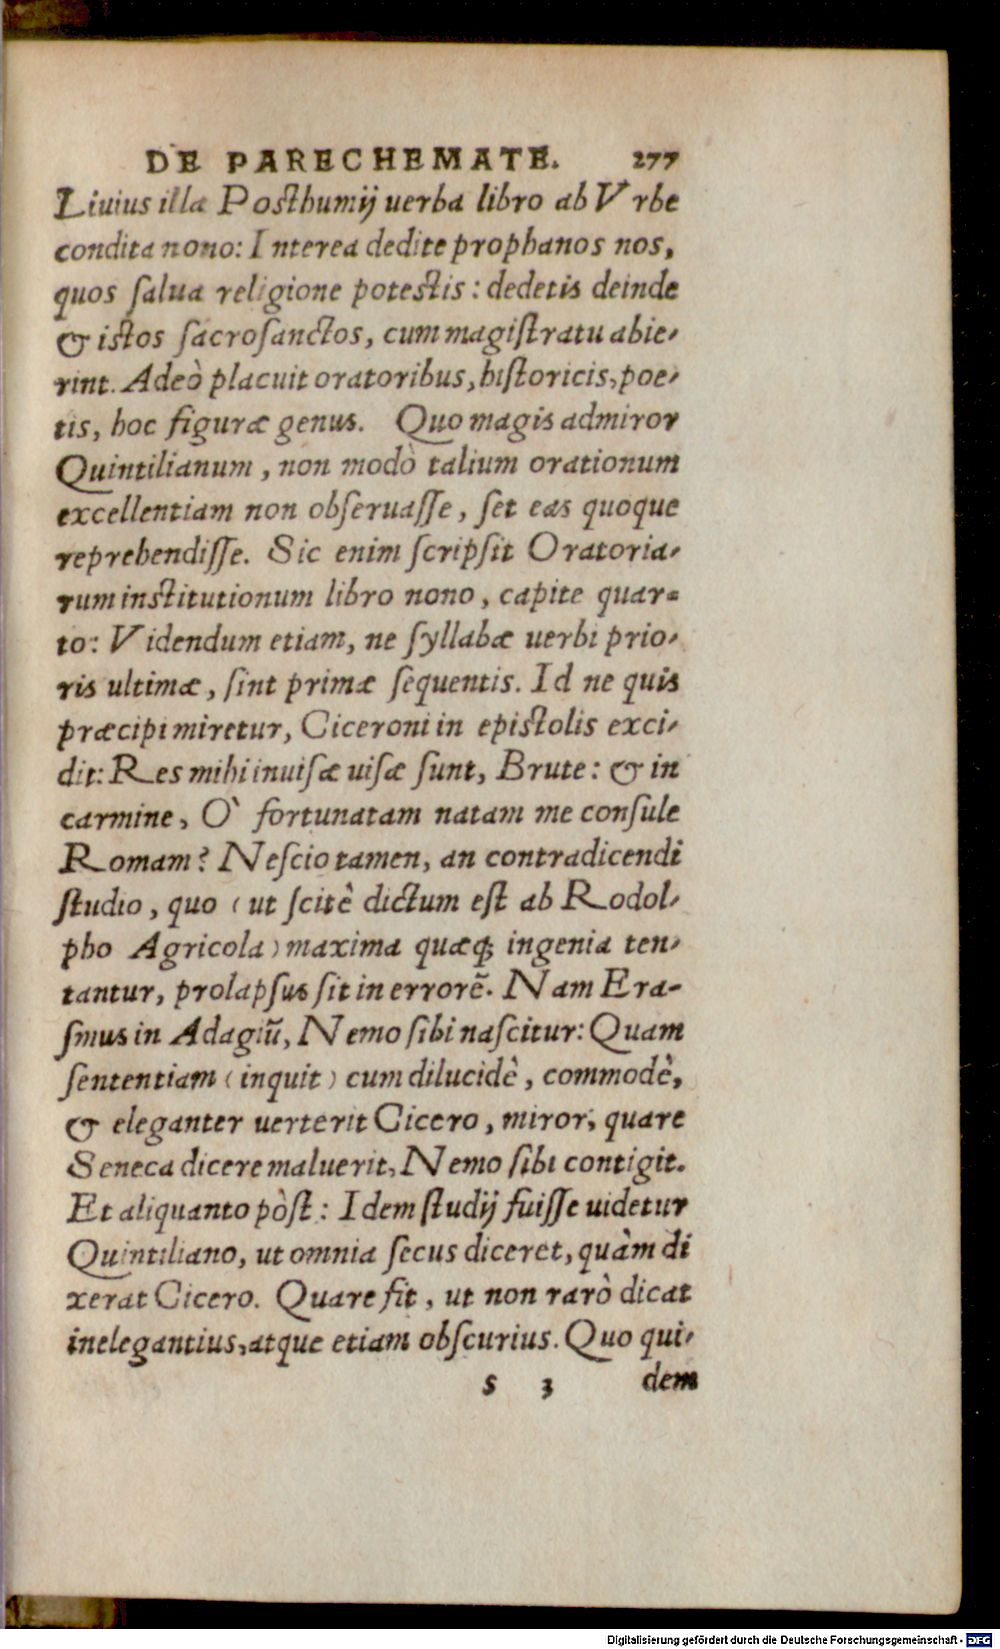 DE PARECHEMATE. 277
Liuius illa Posthumij uerba libro ab Vrbe
condita nono: Interea dedite prophanos nos,
quos salua religione potestis: dedetis deinde
& istos sacrosanctos, cum magistratu abie-
rint. Adeò placuit oratoribus, historicis, poe-
tis, hoc figuræ genus. Quo magis admiror
Quintilianum, non modò talium orationum
excellentiam non obseruasse, set eas quoque
reprehendisse. Sic enim scripsit Oratoria-
rum institutionum libro nono, capite quar-
to: Videndum etiam, ne syllabæ uerbi prio-
ris ultimæ, sint primæ sequentis. Id ne quis
præcipi miretur, Ciceroni in epistolis exci-
dit: Res mihi inuisæ uisæ sunt, Brute: & in
carmine, O` fortunatam natam me consule
Romam? Nescio tamen, an contradicendi
studio, quo (ut scitè dictum est ab Rodol-
pho Agricola) maxima quæq; ingenia ten-
tantur, prolapsus sit in errorē. Nam Era-
smus in Adagiū, Nemo sibi nascitur: Quam
sententiam (inquit) cum dilucidè, commodè,
& eleganter uerterit Cicero, miror, quare
Seneca dicere maluerit, Nemo sibi contigit.
Et aliquanto pòst: Idem studij fuisse uidetur
Quintiliano, ut omnia secus diceret, quàm di
xerat Cicero. Quare fit, ut non rarò dicat
inelegantius, atque etiam obscurius. Quo qui-
s 3 dem
Digitalisierung gefördert durch die Deutsche Forschungsgemeinschaft - DFG